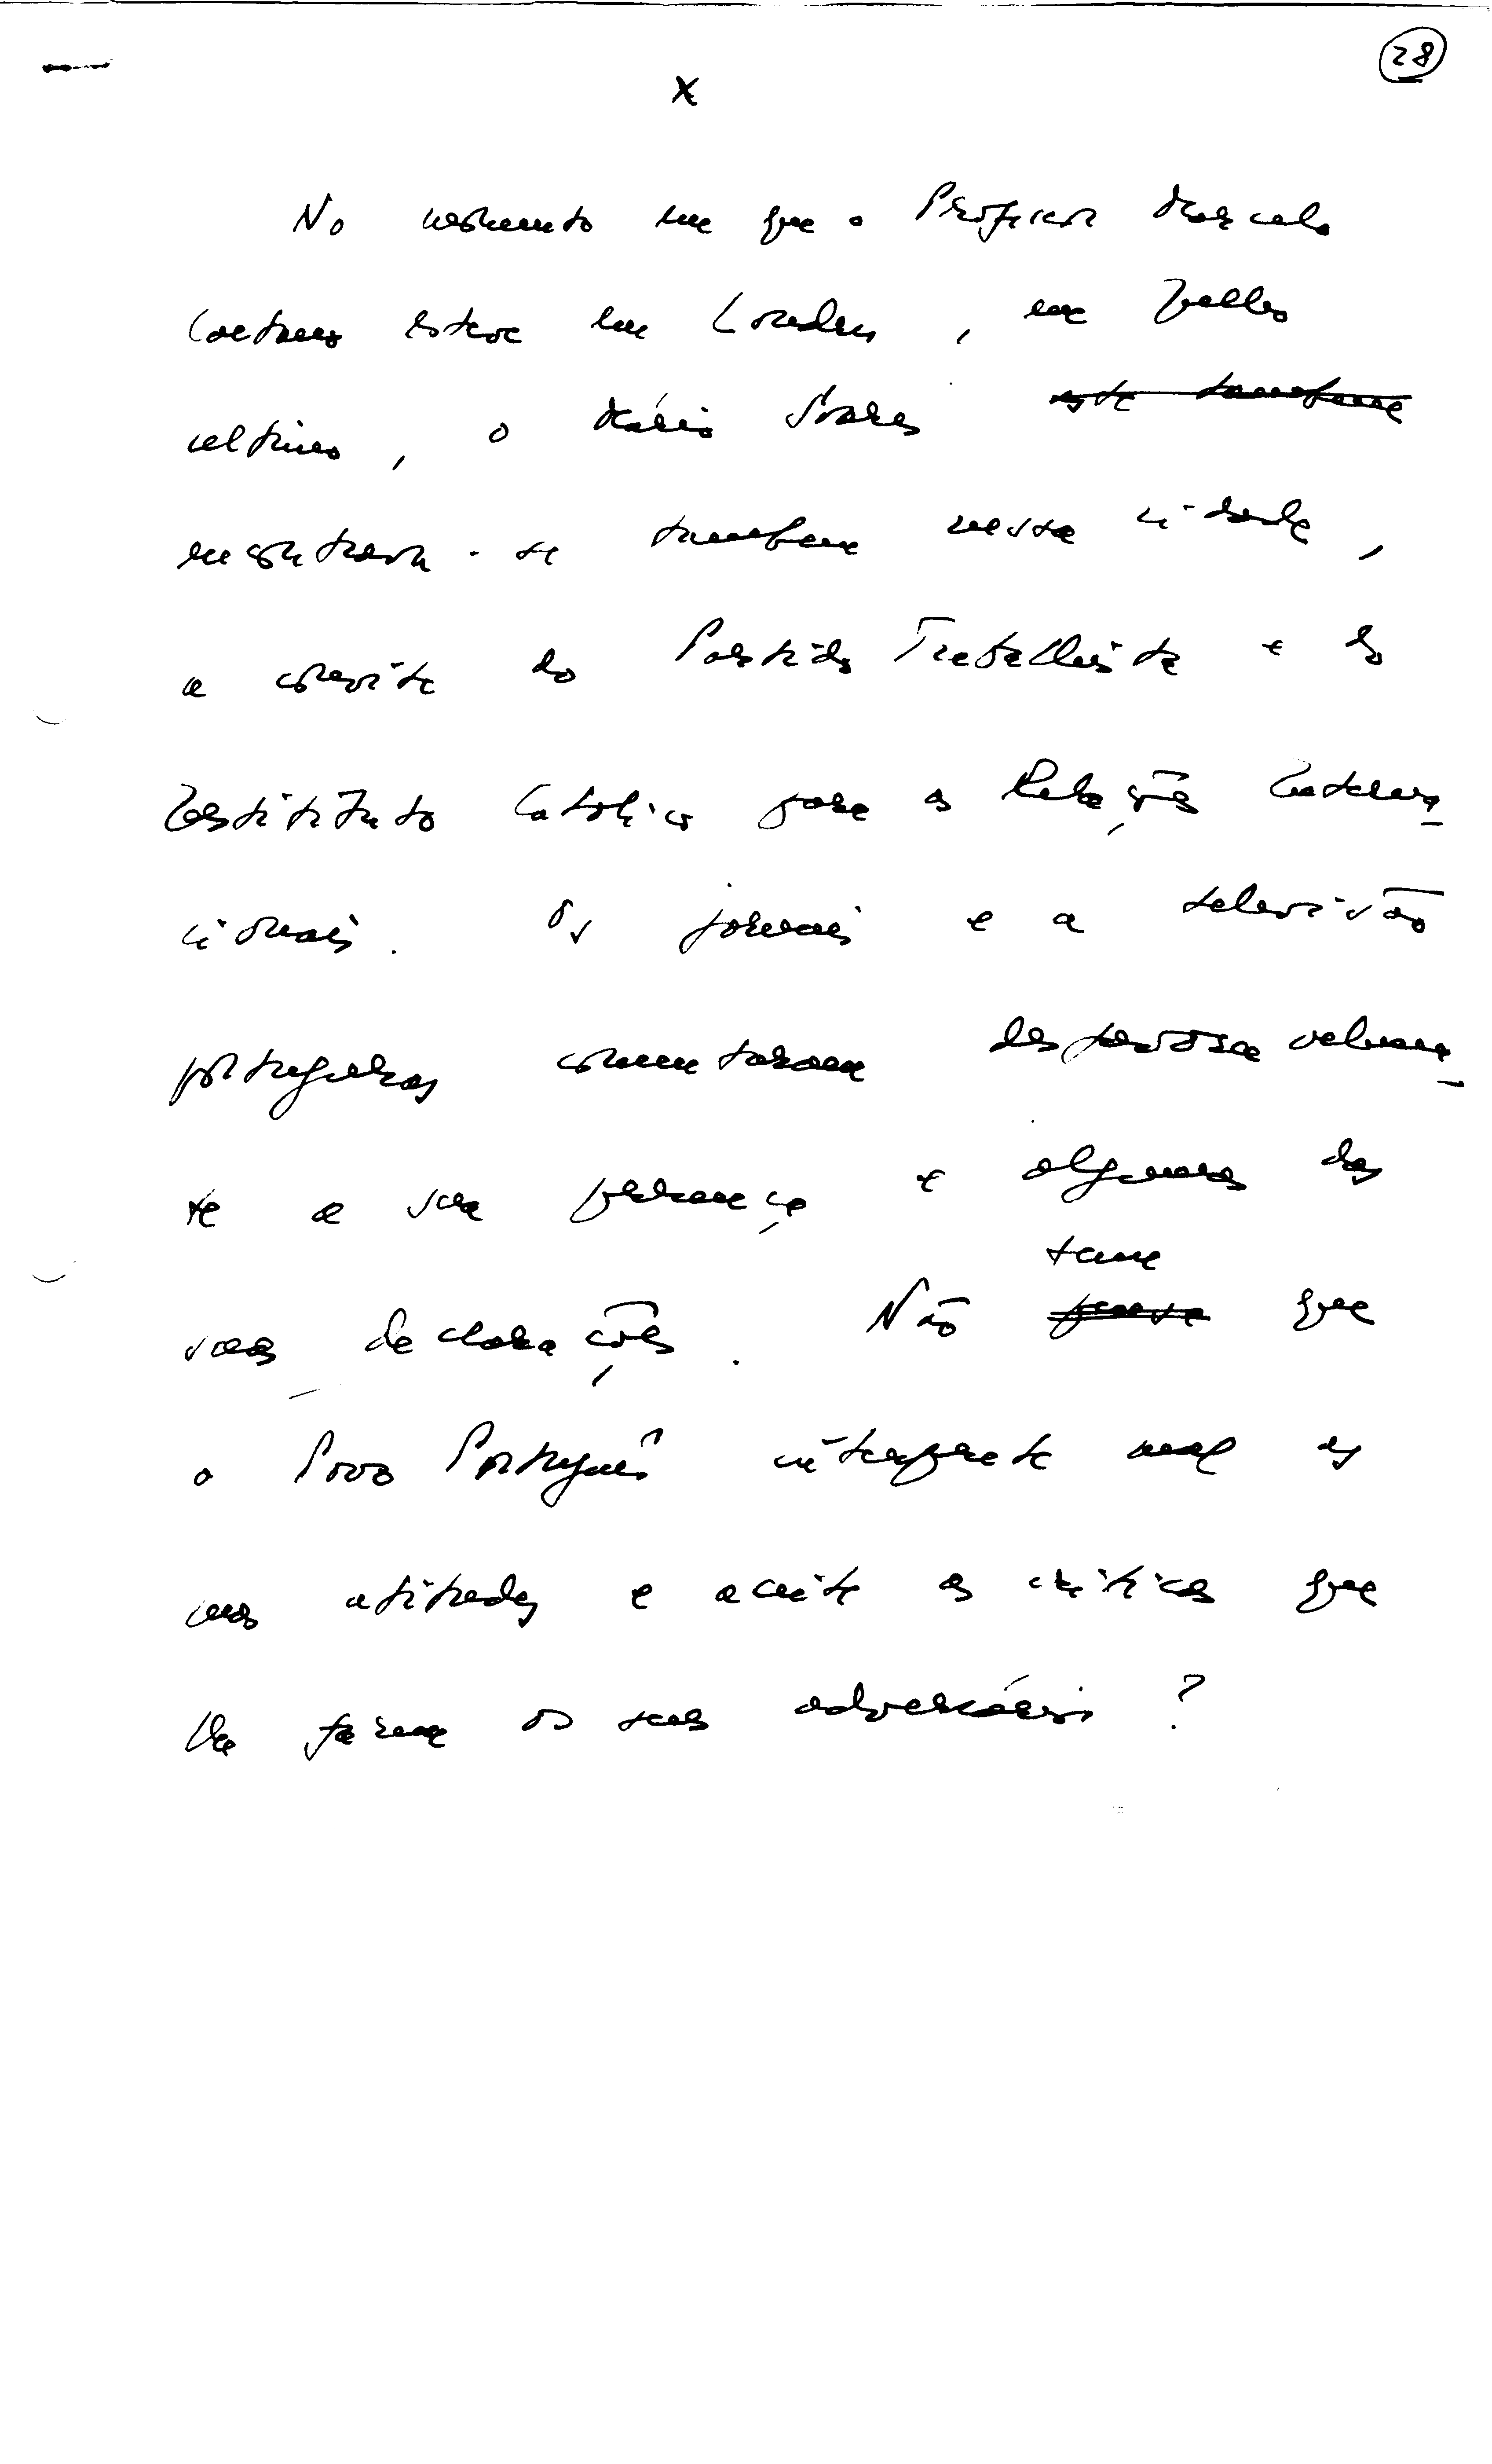 28
x
No momento em que o Professor Marcelo
Caetano esteve em Londres, em Julho
último, o Mário Soares este também
encontrava-se também nessa cidade,
a convite do Partido Trabalhista e do
Instituto Católico para as Relações Interna-
cionais. Os jornais e a televisão
portugueses comentaram desfavoravelmen-
te a sua presença e algumas das
suas declarações. Não teme que
o Povo Português interprete mal as
suas atitudes e aceite as críticas que
lhe fazem os seus adversários?